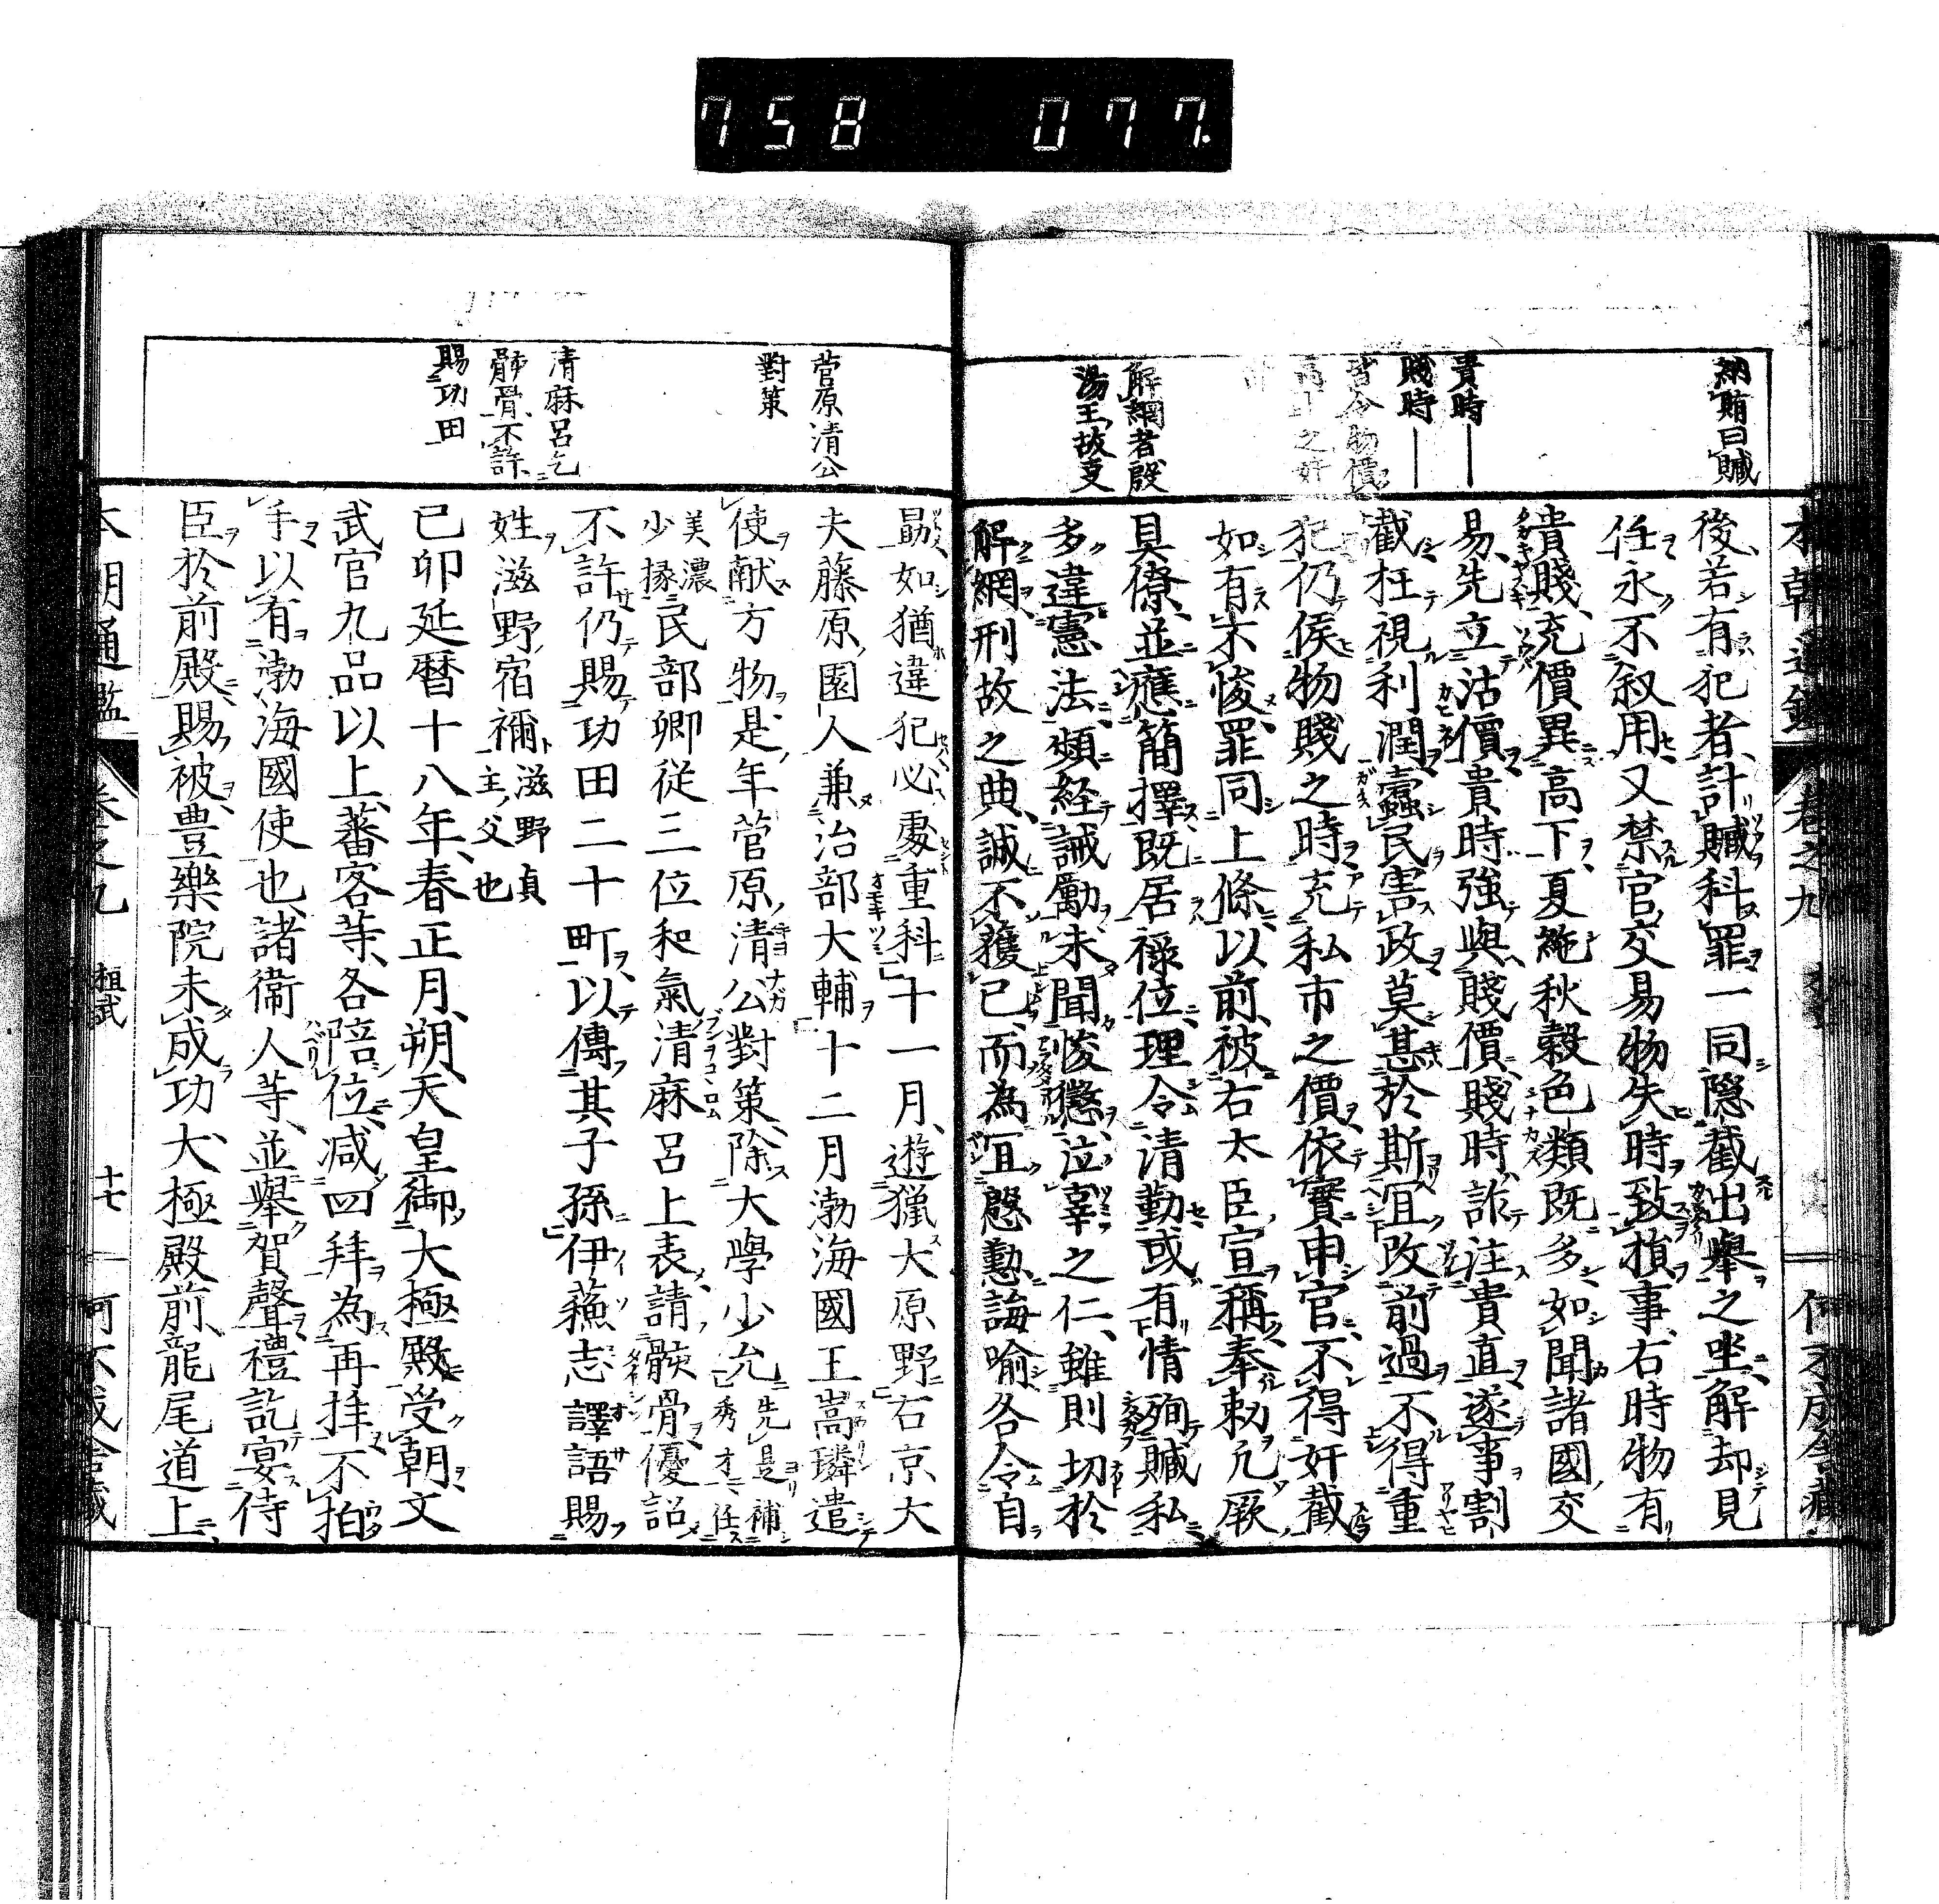 758 077
納賄曰贓
貴時
賤時
解網者殷
湯王故支
後若有犯者計贓科罪一同隠截出擧之坐解却見
任永不叙用又禁官交易物失時致損事右時物有
貴賤充價異高下夏絁秋穀色類既多如聞諸國交
易先立沽價貴時強與賤價賤時詐注貴直遂事割
截枉視利潤蠹民害政莫甚於斯宜改前過不得重
犯仍俟物賤之時充私市之價依實申官不得奸截
如有不悛罪同上條以前被右大臣宣稱奉勅凢厥
具僚並應簡擇既居禄位理令清勤或有情殉贓私
多違憲法頻経誡勵未聞悛懲泣辜之仁雖則切於
解網刑故之典誠不獲已而為宜慇懃誨喻各令自
菅原清公
對策
清麻呂乞
骸骨不許
賜功田
勗如猶違犯必處重科十一月遊獵大原野右京大
夫藤原園人兼治部大輔十二月渤海國王嵩璘遣
使献方物是年菅原清公對策除大學少允先是補秀才任
美濃少掾民部卿従三位和氣清麻呂上表請骸骨優詔
不許仍賜功田二十町以傳其子孫伊蘓志譯語賜
姓滋野宿禰滋野貞主父也
已卯延暦十八年春正月朔天皇御大極殿受朝文
武官九品以上蕃客等各陪位減四拜為再拝不拍
手以有渤海國使也諸衞人等並擧賀聲禮訖宴侍
臣於前殿賜被豊樂院未成功大極殿前龍尾道上
本朝通鑑 卷之九 桓武 十七